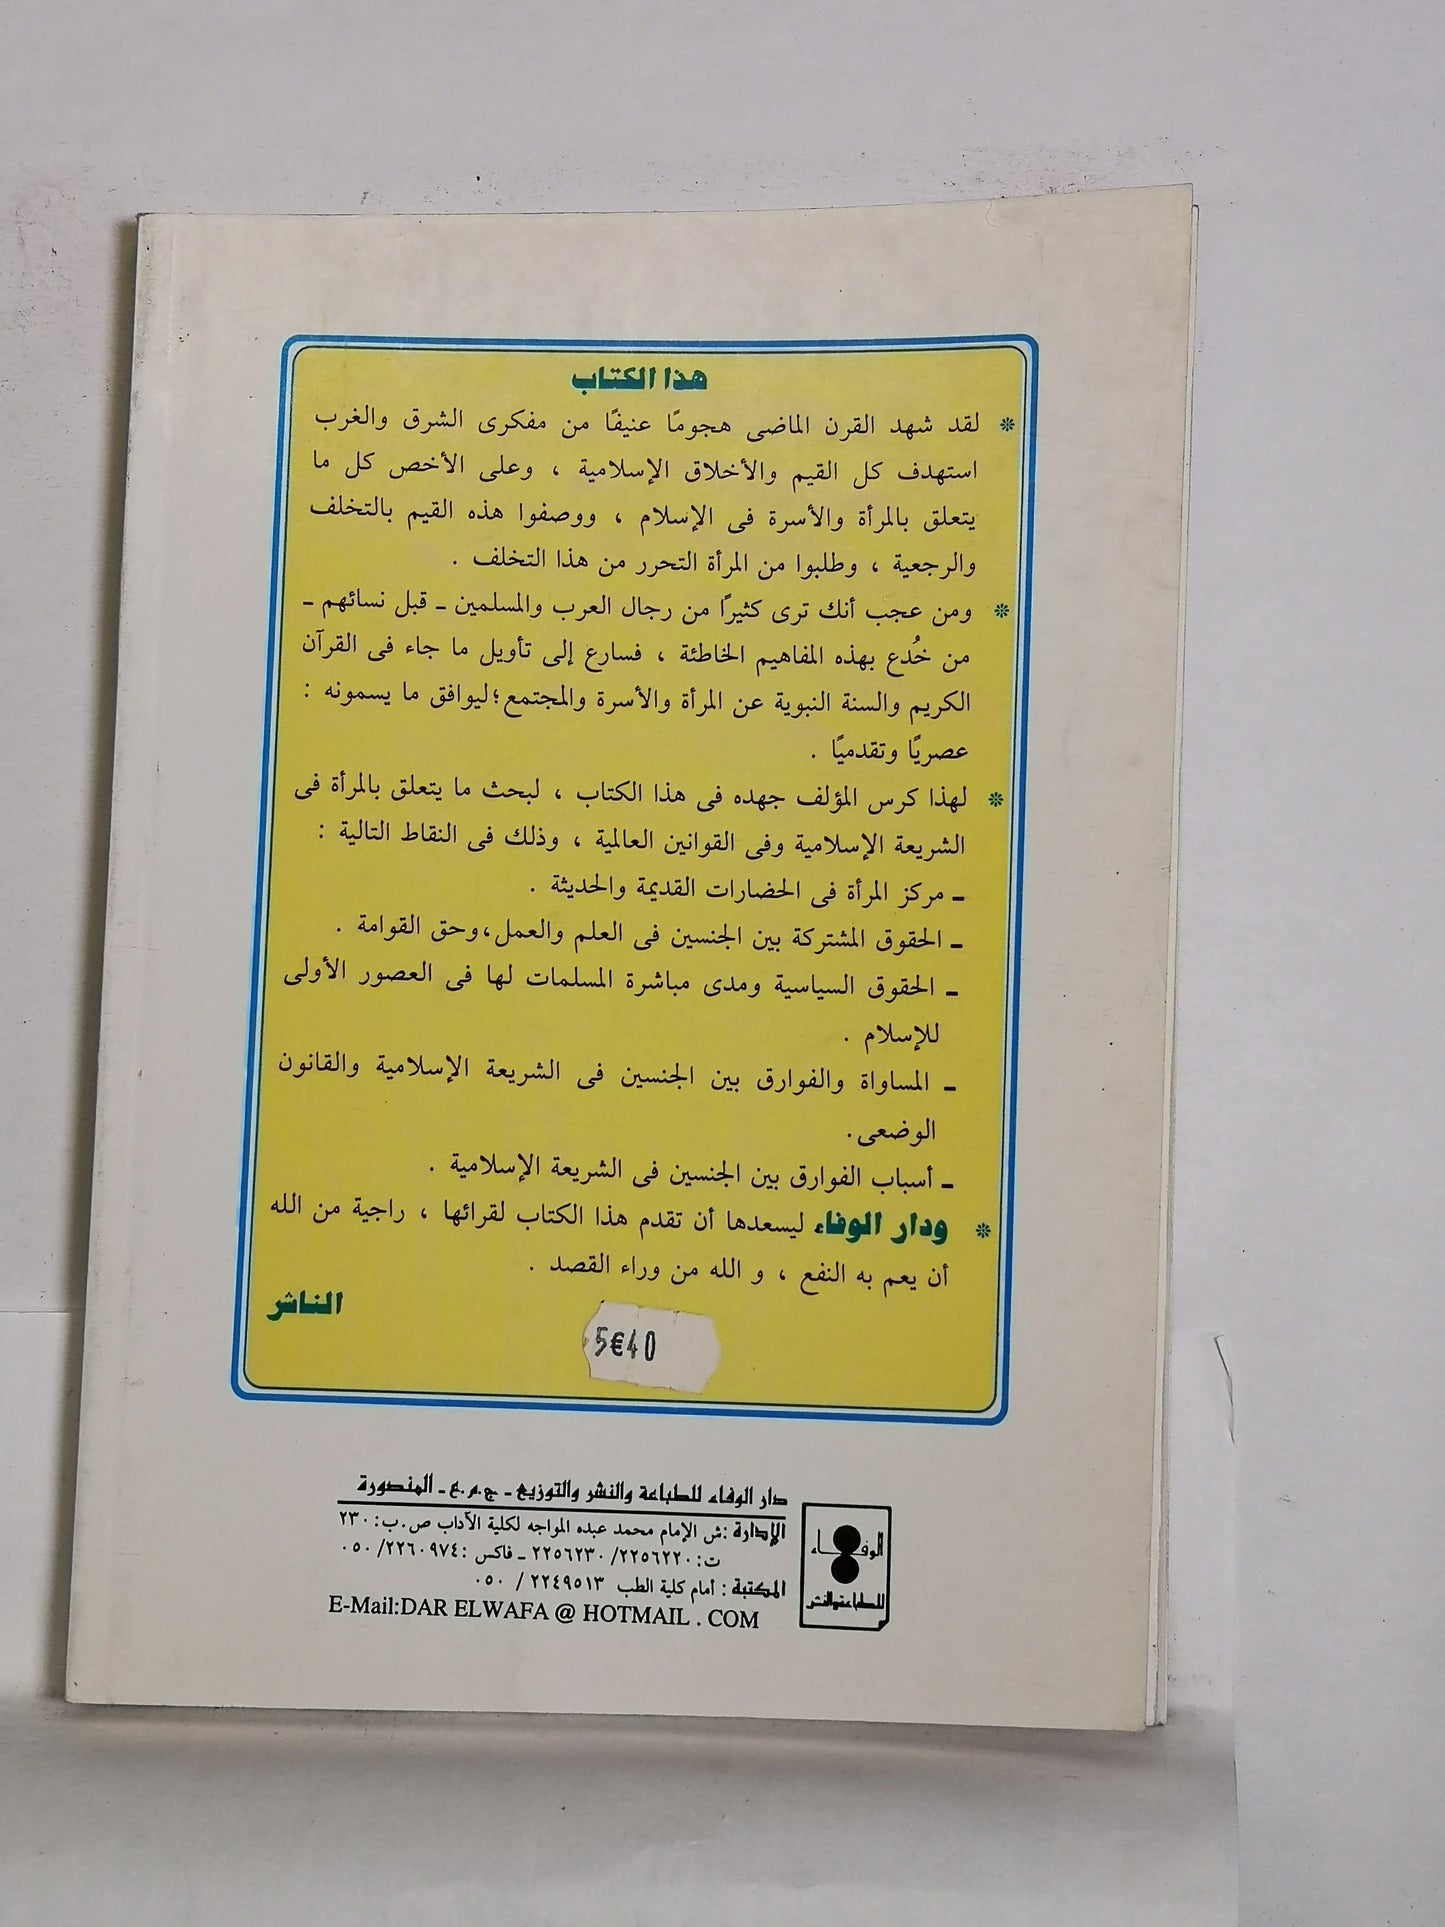 هذا الكتاب
❊ لقد شهد القرن الماضى هجومًا عنيفًا من مفكرى الشرق والغرب
استهدف كل القيم والأخلاق الإسلامية ، وعلى الأخص كل ما
يتعلق بالمرأة والأسرة فى الإسلام ، ووصفوا هذه القيم بالتخلف
والرجعية ، وطلبوا من المرأة التحرر من هذا التخلف .
❊ ومن عجب أنك ترى كثيرًا من رجال العرب والمسلمين ـ قبل نسائهم ـ
من خُدع بهذه المفاهيم الخاطئة ، فسارع إلى تأويل ما جاء فى القرآن
الكريم والسنة النبوية عن المرأة والأسرة والمجتمع؛ليوافق ما يسمونه :
عصريًا وتقدميًا .
❊ لهذا كرس المؤلف جهده فى هذا الكتاب ، لبحث ما يتعلق بالمرأة فى
الشريعة الإسلامية وفى القوانين العالمية ، وذلك فى النقاط التالية :
ـ مركز المرأة فى الحضارات القديمة والحديثة .
ـ الحقوق المشتركة بين الجنسين فى العلم والعمل،وحق القوامة .
ـ الحقوق السياسية ومدى مباشرة المسلمات لها فى العصور الأولى
للإسلام .
ـ المساواة والفوارق بين الجنسين فى الشريعة الإسلامية والقانون
الوضعى.
ـ أسباب الفوارق بين الجنسين فى الشريعة الإسلامية .
❊ ودار الوفاء ليسعدها أن تقدم هذا الكتاب لقرائها ، راجية من الله
أن يعم به النفع ، و الله من وراء القصد .
الناشر
5€40
دار الوفاء للطباعة والنشر والتوزيع ـ ج.م.ع ـ المنصورة
الإدارة :ش الإمام محمد عبده المواجه لكلية الآداب ص.ب: ٢٣٠
ت: ٢٢٥٦٢٢٠/ ٢٢٥٦٢٣٠ ـ فاكس :٢٢٦٠٩٧٤/ ٠٥٠
المكتبة : أمام كلية الطب ٢٢٤٩٥١٣ / ٠٥٠
E-Mail:DAR ELWAFA @ HOTMAIL . COM
الوفاء
للطباعة والنشر